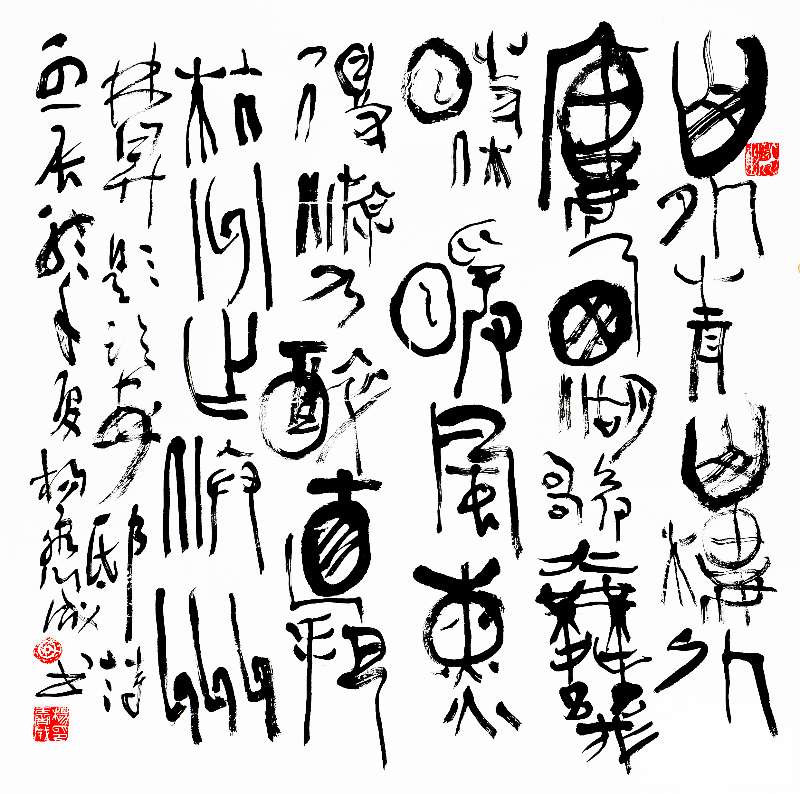 山外青山樓外
樓西湖歌舞幾
時休暖風熏
得遊人醉直把
杭州作汴州
林昇題臨安邸詩
辰龍年夏楊成書